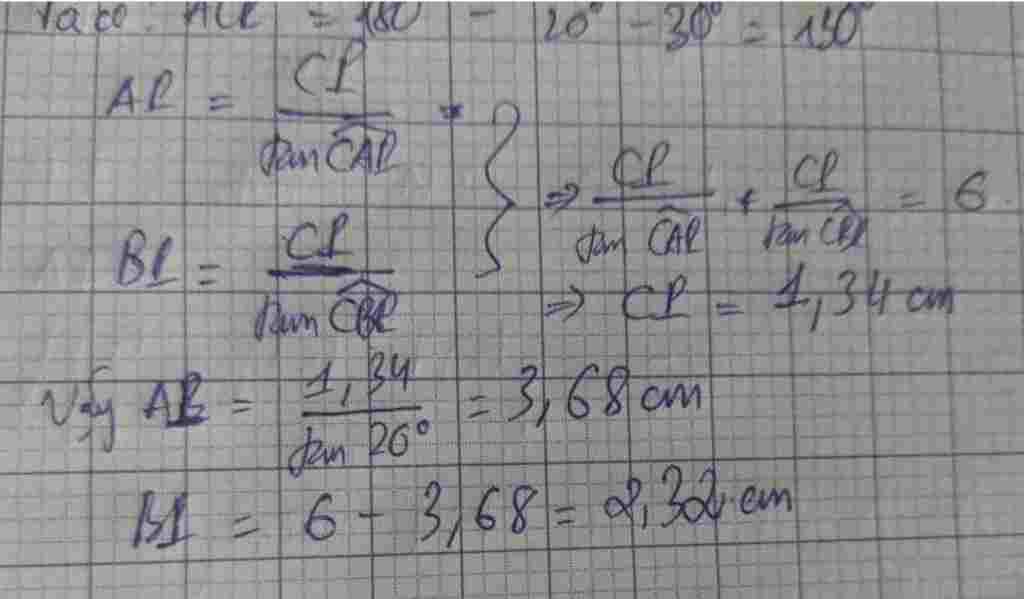 Ta có: ACB = 180 - 20° - 30° = 130°
AP = CP / tan CAP
BP = CP / tan CBP } => CP / tan CAP + CP / tan CBP = 6
=> CP = 1,34 cm
Vậy AP = 1,34 / tan 20° = 3,68 cm
BP = 6 - 3,68 = 2,32 cm